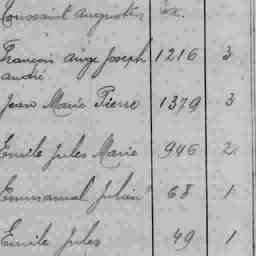 Toussaint Augustin
François Ange Joseph 1216 3
André
Jean Marie Pierre 1379 3
Emile Jules Marie 946 2
Emmanuel Julien 68 1
Emile Jules 49 1